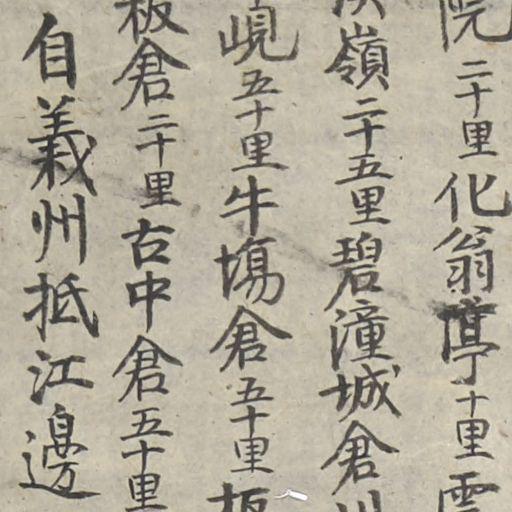 院二十里化翁亭十里雲
嶺二十五里碧潼城倉
峴五十里牛塲倉五十里板
板倉二十里古中倉五十里
自義州抵江邊